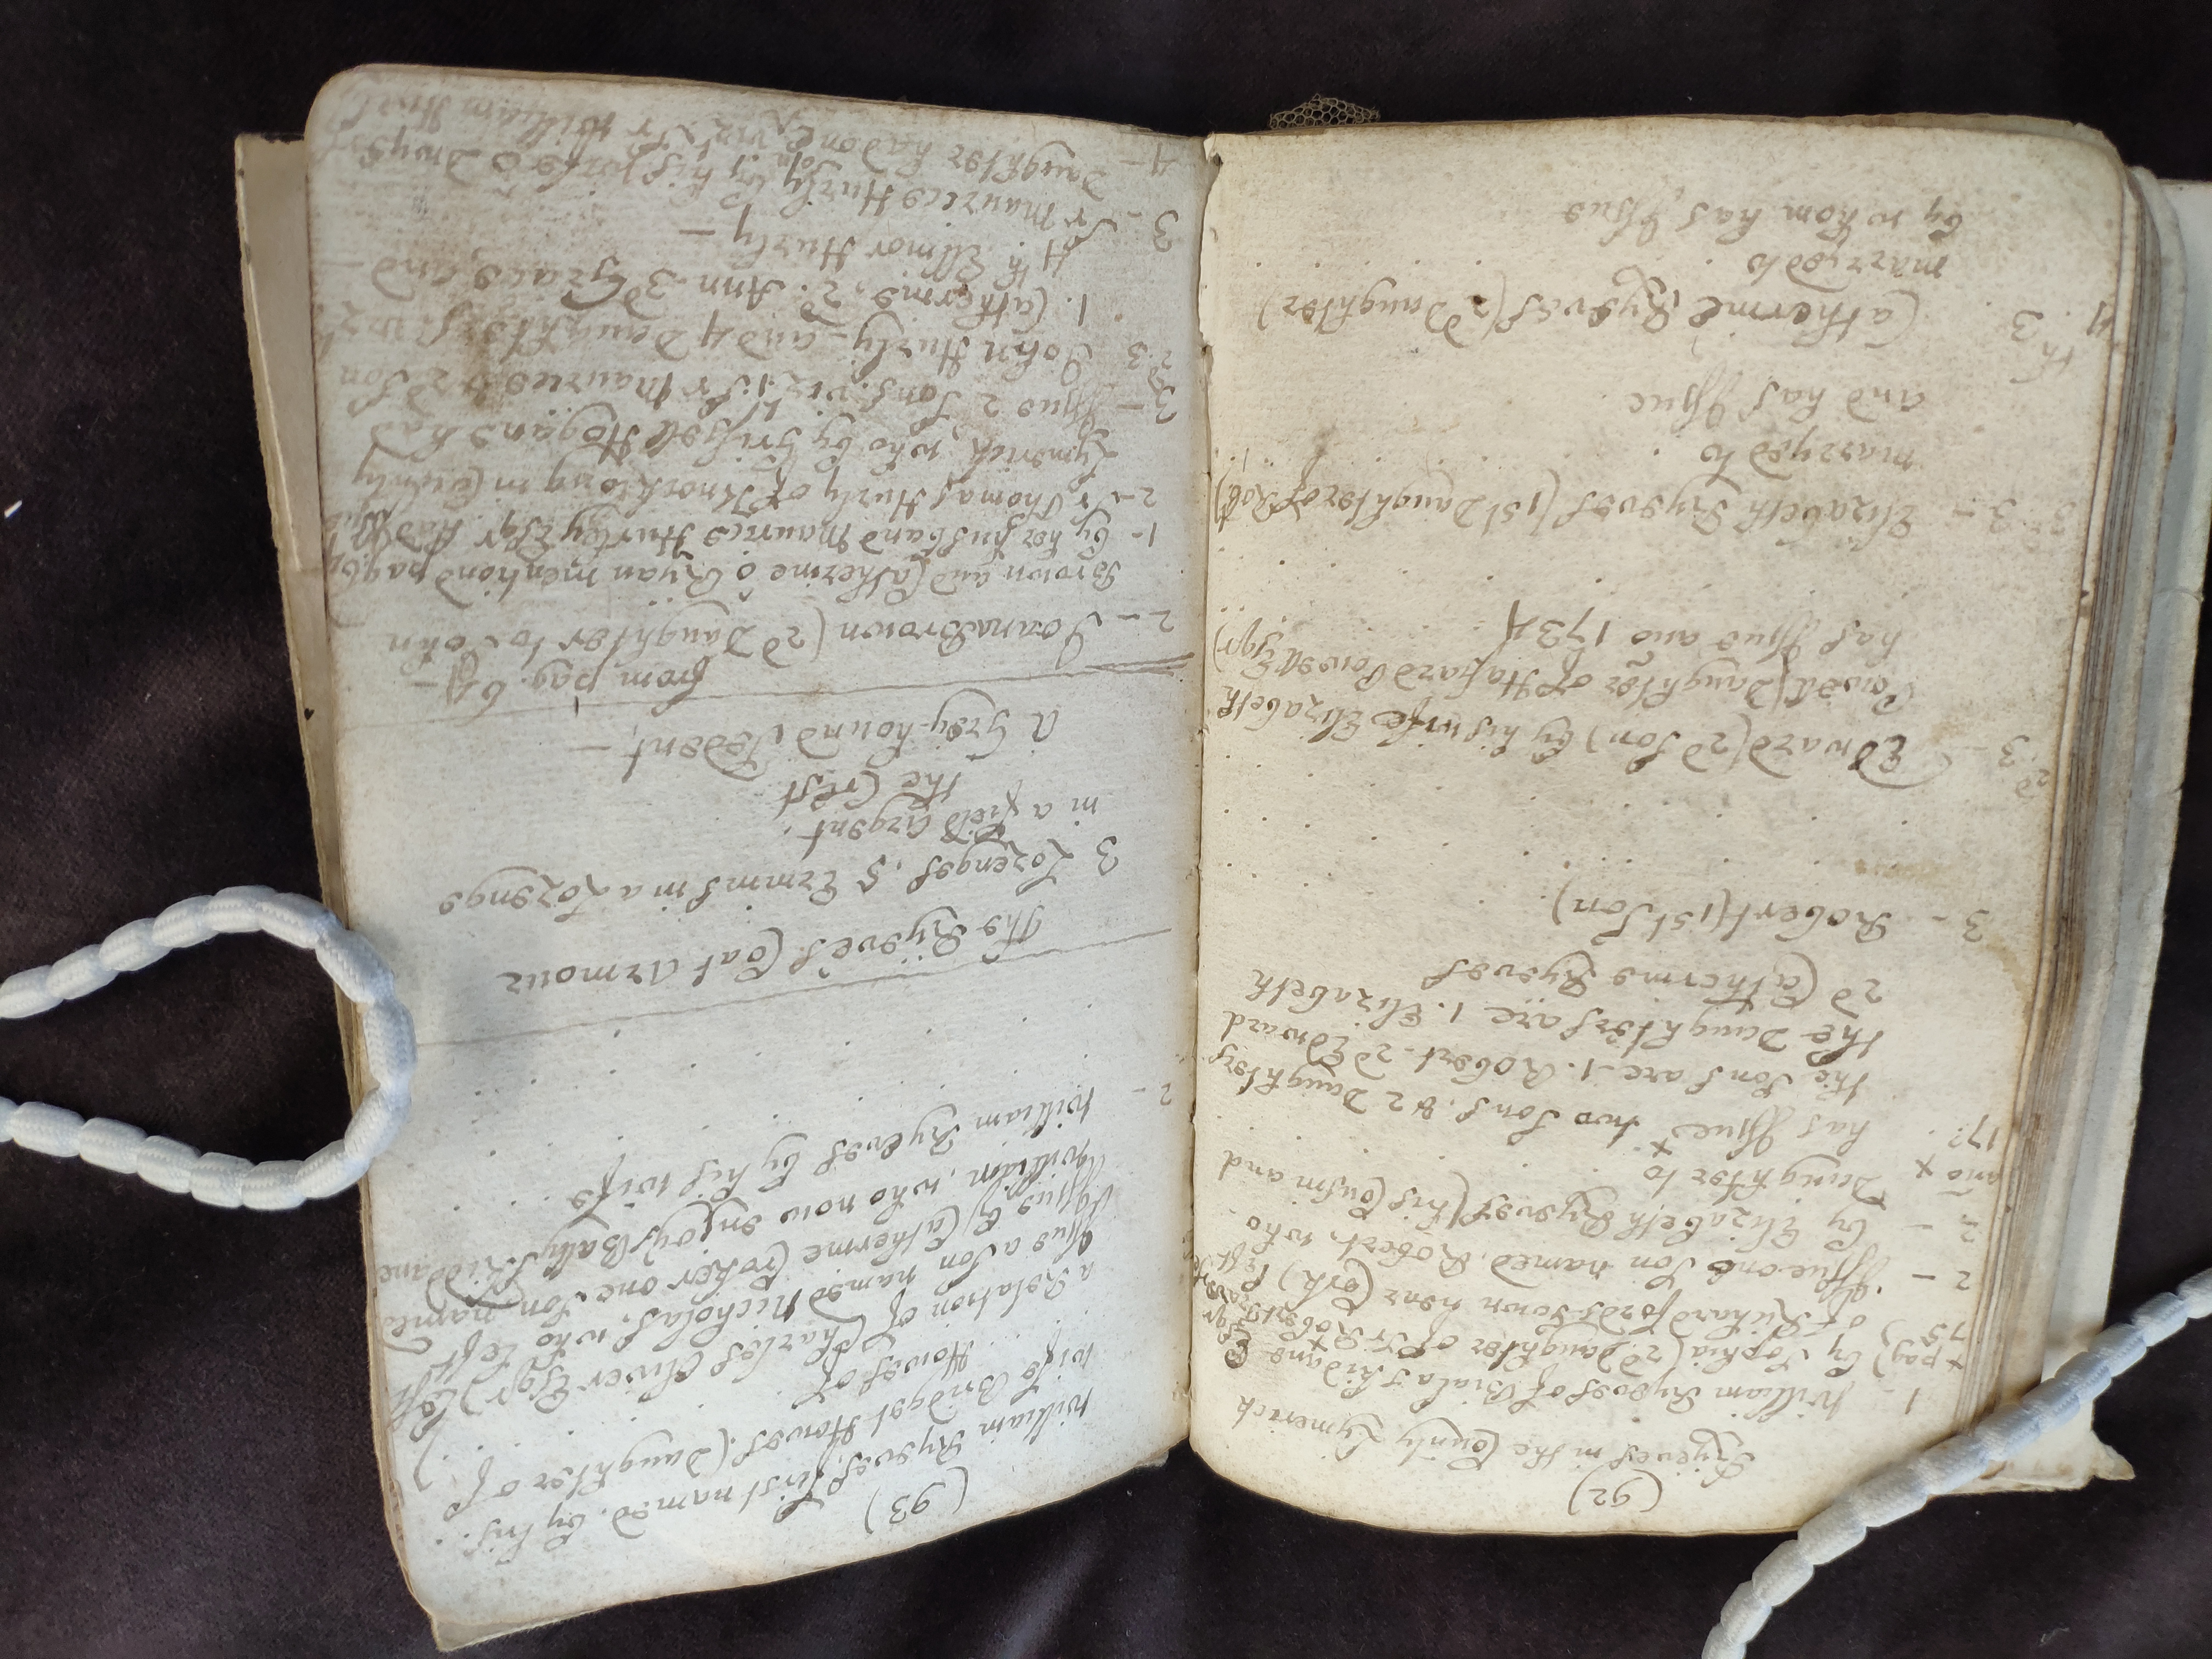 (92)
Ryeves in the County Lymerick
1 - William Ryeves of Bialaskidane
+ pag) by Sophia (2d. Daughter of Sr Robert Esqr
75) of Richardfordstown near Cork) left
2 - Issue one Son named. Robert, who
2 - by Elizabeth Ryeves (his Cousin and
ano + Daughter to
17 has Issue two Sons. & 2 Daughters
the Sons are 1. Robert. 2d Edward
the Daughters are 1. Elizabeth
2d Catherine Ryeves
3 - Robert (1st Son)
2d 3 - Edward (2d Son) by his wife Elizabeth
Powell (Daughter of Hafard Powell Esqr)
has Issue ano 1734
3 - Elizabeth Ryeves (1st Daughter of Robt)
marryed to
and has Issue
4th 3 Catherine Ryeves (2d Daughter)
marryed to
by whom has Issue
(93)
William Ryeves, first named. by his
wife Bridget Howes. (Daughter of
Howes of
a Relation of Charles Oliver Esqr) left
Issue a Son named Nicholas, who left
Issue by Catherine Croker one Son named
William, who now enjoys Ballyskiddane
2 - William Ryeves by his wife
The Ryeves Coat Armour
3 Lozenges, 5 Ermins in a Lozenge
in a field Argent.
the Crest
A Grey-hound Sedent, -
from pag. 64 -
2 - Joana Brown (2d Daughter to John
Brown and Catherine o Ryan mentiond pag 64
1 - by her husband Maurice Hurley Esqr had Issue
2 - Sr Thomas Hurly of Knocklong in County
Lymerick, who by Grisell Hogane had
3 - Issue 2 Sons. vizt. 1. Sr Maurice & 2d Son
2d 3 John Hurly - and 4 Daughters. vizt
1. Catherine, 2. Ann. 3d Grace, and
4th. Ellinor Hurly -
3 - Sr Maurice Hurly by his wife o Dwyer's
4 - Daughter had one Son, vizt. Sr William Hurly